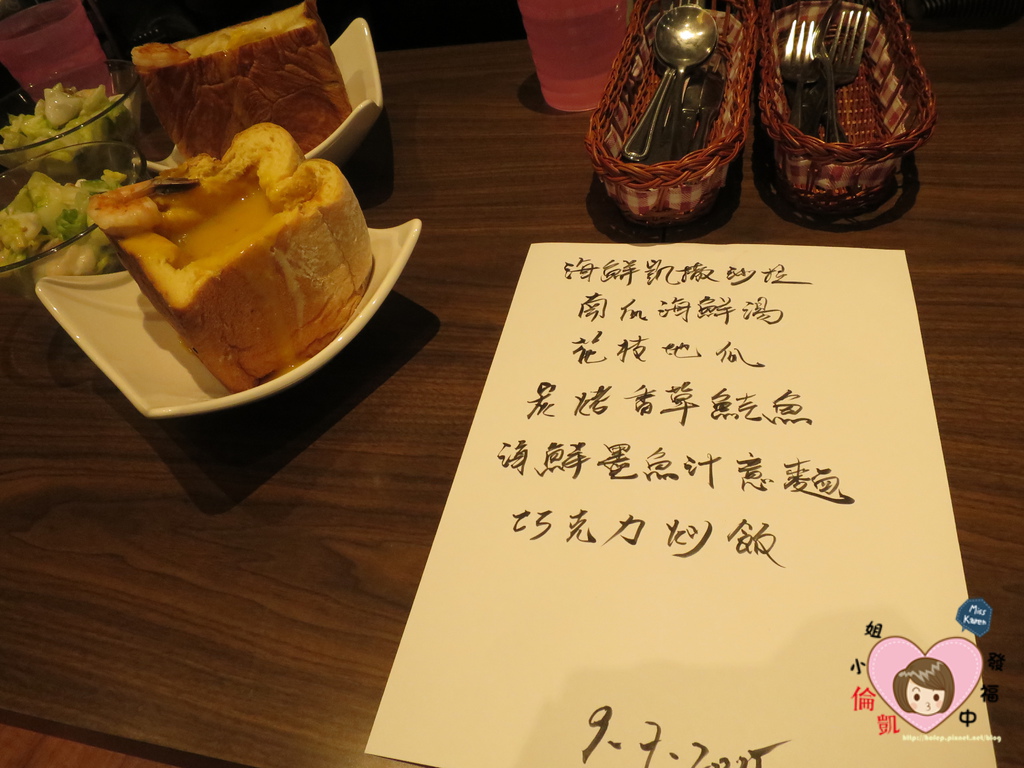 海鮮凱撒砂拉
南瓜海鮮湯
花枝地瓜
炭烤香草鮭魚
海鮮墨魚汁意麵
巧克力炒飯
9.7.2015
Miss Karen
凱倫小姐
發福中
http://kafep.pixnet.net/blog